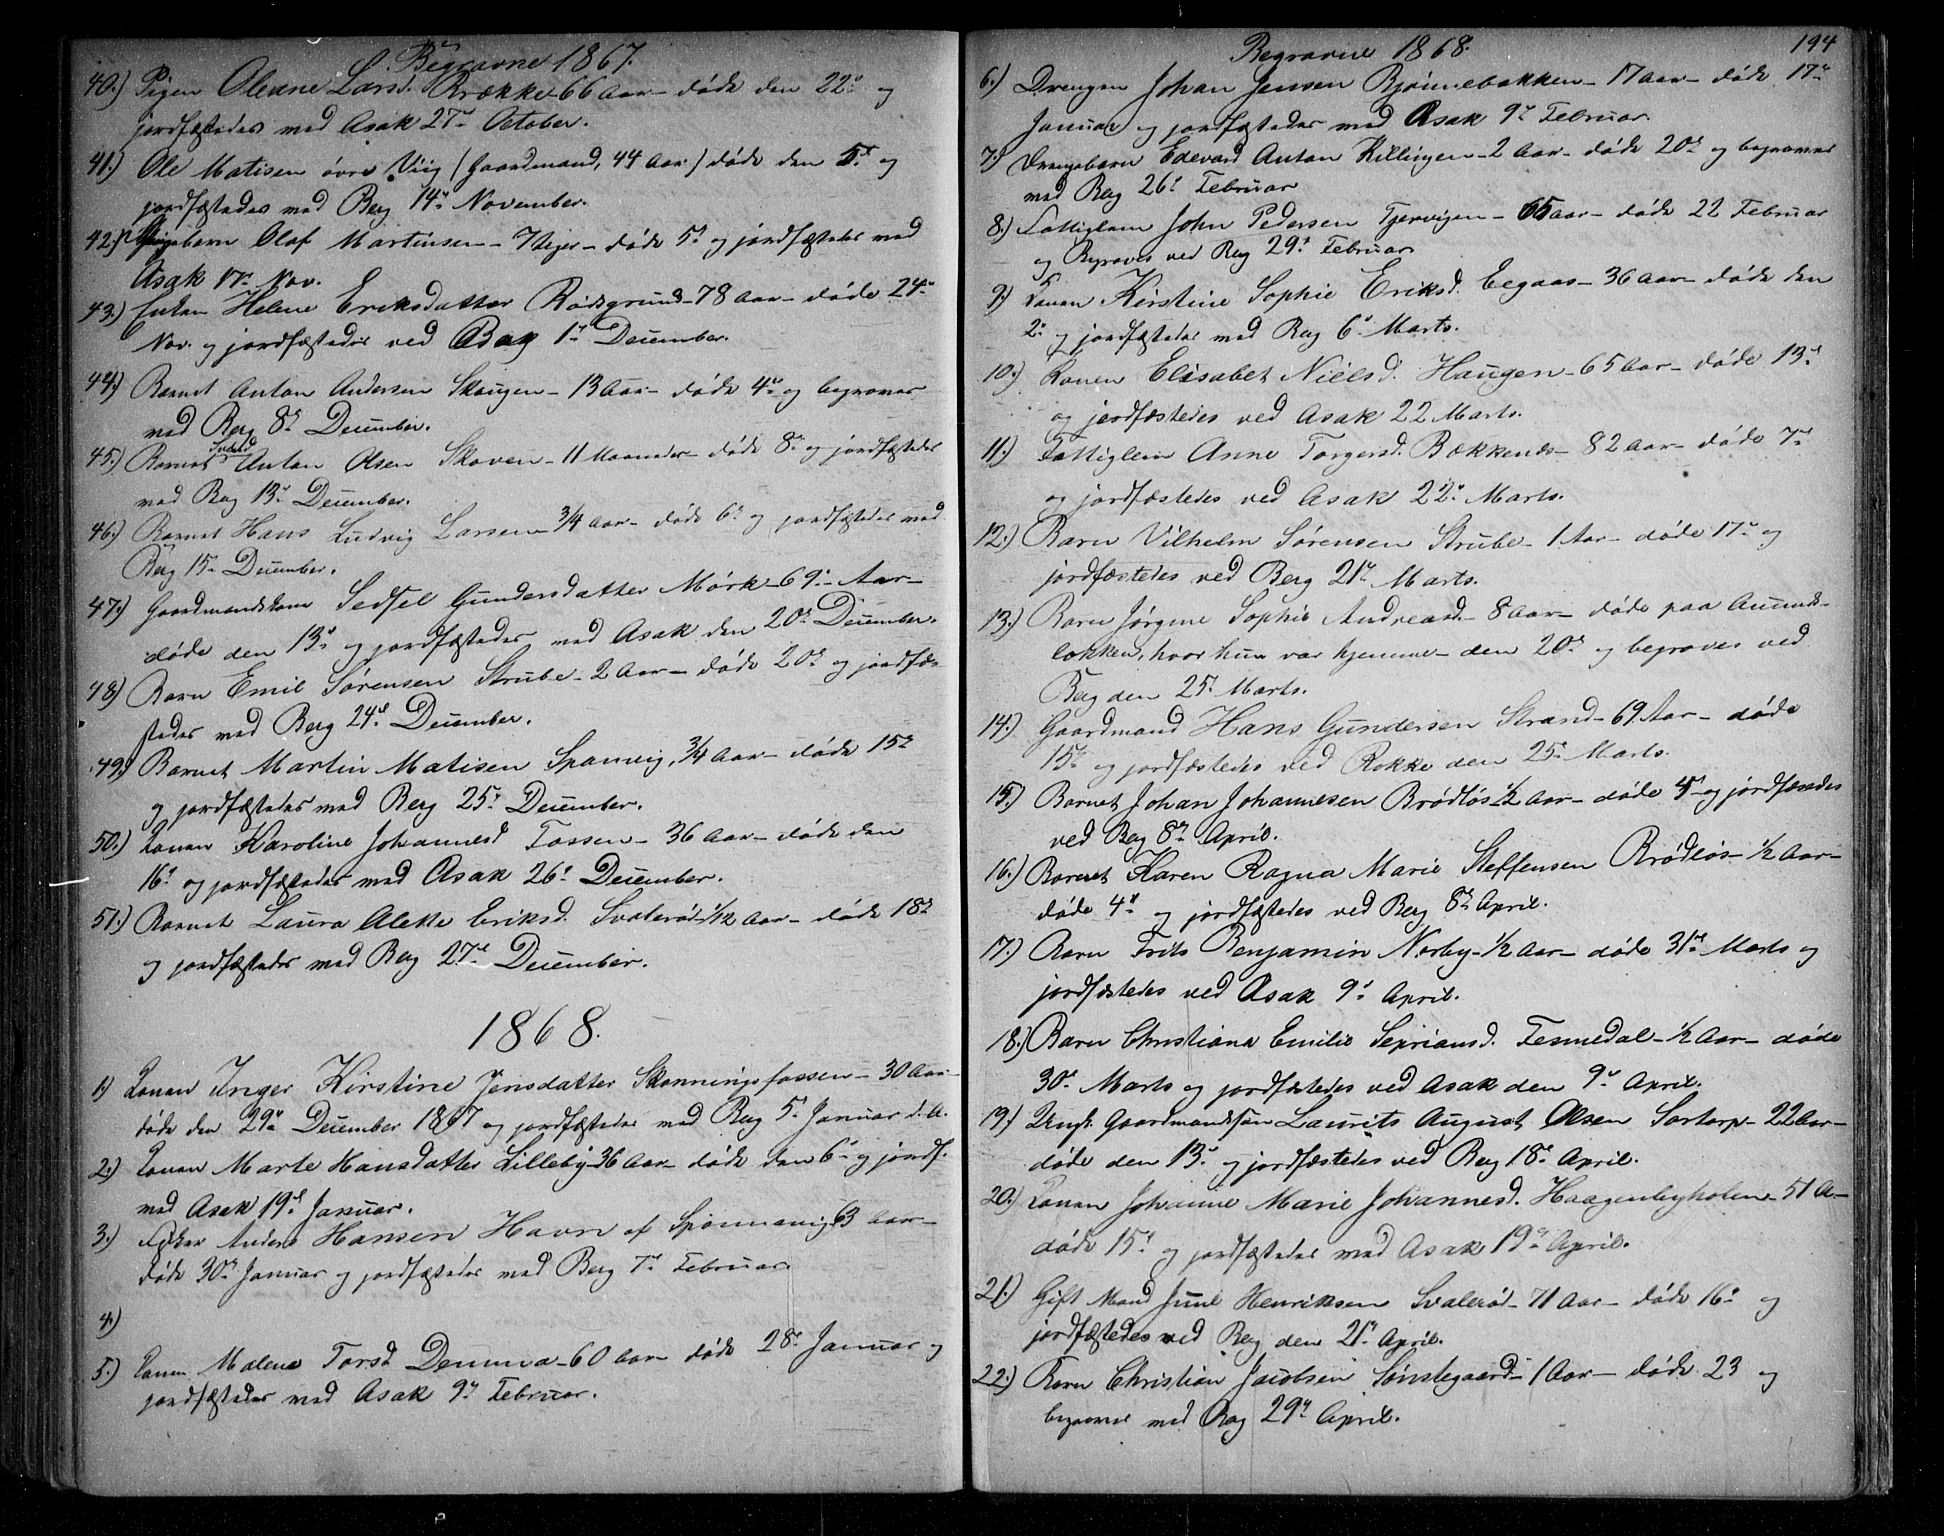 Begravne 1867.
40.) Pigen Oleane Larsd. Krække 66 Aar – døde den 22de og
jordfæstedes ved Asak 27de October.
41.) Ole Matisen øvre Viig (Gaardmand, 44 Aar) døde den 5te og
jordfæstedes ved Berg 14de November.
42.) Olaf Martinsen – 7 Uger – døde 5te og jordfæstedes ved
Asak 17de Nov.
43.) Enken Helene Eriksdatter Rødsgrund – 78 Aar – døde 24de
Nov. og jordfæstedes ved Asak 1ste December.
44.) Barnet Anton Andersen Skougen – 13 Aar – døde 4de og begravet
ved Berg 8de December.
45.) Barnet Anton Olsen Skoven – 11 Maaneder – døde 8de og jordfæstedes
ved Berg 13de December.
46.) Barnet Hans Ludvig Larsen – 3/4 Aar – døde 6te og jordfæstedes ved
Berg 15de December.
47.) Gaardmandskone Sedsel Gundersdatter Mørk – 69 Aar –
døde den 13de og jordfæstedes ved Asak den 20de December.
48.) Barn Emil Sørensen Strube – 2 Aar – døde 20de og jordfæ-
stedes ved Berg 24de December.
49.) Barnet Martin Matisen Sponvig, 3/4 Aar – døde 15de
og jordfæstedes ved Berg 25de December.
50.) Konen Karoline Johannesd Fossen – 36 Aar – døde den
16de og jordfæstedes ved Asak 26de December.
51.) Barnet Laura Alette Eriksd. Svalerød 1/2 Aar – døde 18de
og jordfæstedes ved Berg 27de December.
1868.
1.) Konen Inger Kirstine Jensdatter Skonningsfossen – 30 Aar –
døde den 29de December 1867 og jordfæstedes ved Berg 5te Januar d. A.
2.) Konen Marte Hansdatter Lilleby – 36 Aar – døde den 6te og jordf.
ved Asak 19de Januar.
3.) Fisker Anders Hansen Havn af Sponnevig 63 Aar –
døde 30te Januar og jordfæstedes ved Berg 7de Februar.
4.)
5.) Konen Malene Torsd Demma – 60 Aar – døde 28de Januar og
jordfæstedes ved Asak 9de Februar.
Begravne 1868.
194
6.) Drengen Johan Jensen Bjørnebakken – 17 Aar – døde 17de
Januar og jordfæstedes ved Asak 9de Februar.
7.) Drengebarn Edevard Anton Killingen – 2 Aar – døde 20de og begravet
ved Berg 26de Februar
8.) Fattiglem John Pedersen Tjervigen – 65 Aar – døde 22 Februar
og Begraves ved Berg 29de Februar
9.) Konen Kirstine Sophie Eriksd. Eegaas – 36 Aar – døde den
2de og jordfæstedes ved Berg 6te Marts.
10.) Konen Elisabet Nielsd. Haugen – 65 Aar – døde 13de
og jordfæstedes ved Asak 22 Marts.
11.) Fattiglem Anne Torgersd. Bækkenes – 82 Aar – døde 7de
og jordfæstedes ved Asak 22de Marts.
12.) Barn Vilhelm Sørensen Strube – 1 Aar – døde 17de og
jordfæstedes ved Berg 21de Marts.
13.) Barn Jørgine Sophie Andreasd. – 8 Aar – døde paa Amunds-
løkken, hvor hun var hjemme – den 20de og begraves ved
Berg den 25de Marts.
14.) Gaardmand Hans Gundersen Strand – 69 Aar – døde
15de og jordfæstedes ved Rokke den 25de Marts.
15.) Barnet Johan Johannesen Brødløs 1/2 Aar – døde 4de og jordfæstedes
ved Berg 8de April.
16.) Barnet Karen Ragna Marie Steffensen Brødløs – 1/2 Aar –
døde 4de og jordfæstedes ved Berg 8de April.
17.) Barn Frits Benjamin Norby – 1/2 Aar – døde 31te Marts og
jordfæstedes ved Asak 9de April.
18.) Barn Christiana Emilie Seprians d. Tesmedal – 1/2 Aar – døde
30te Marts og jordfæstedes ved Asak den 9de April.
19.) Ungk. Gaardmandssøn Laurits August Olsen Sortorp – 22 Aar –
døde den 13de og jordfæstedes ved Berg 18de April.
20.) Konen Johanne Marie Johannesd. Haagenbyholen – 51 A –
døde 15de og jordfæstedes ved Asak 19de April.
21.) Gift Mand Juul Henriksen Svalerød – 71 Aar – døde 16de og
jordfæstedes ved Berg den 21de April.
22.) Barn Christian Jacobsen Sønstegaard – 1 Aar – døde 23 og
begravet ved Berg 29de April.